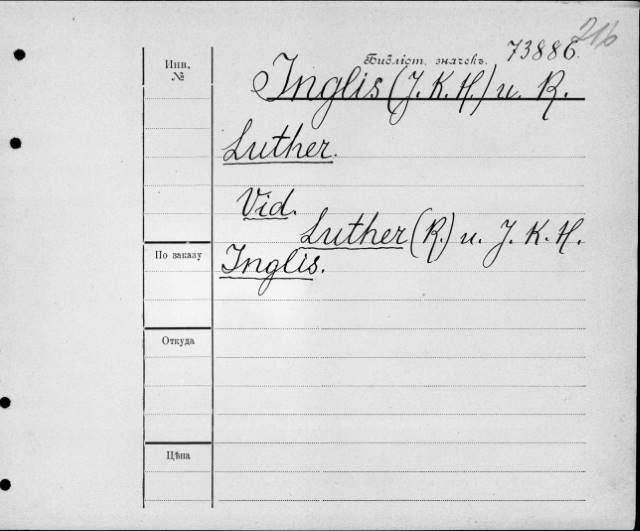 216
73886.
Инв. №
Библіот. значекъ.
Inglis (J. K. H.) u. R.
Luther.
Vid.
Luther (R.) u. J. K. H.
Inglis.
По заказу
Откуда
Цѣна